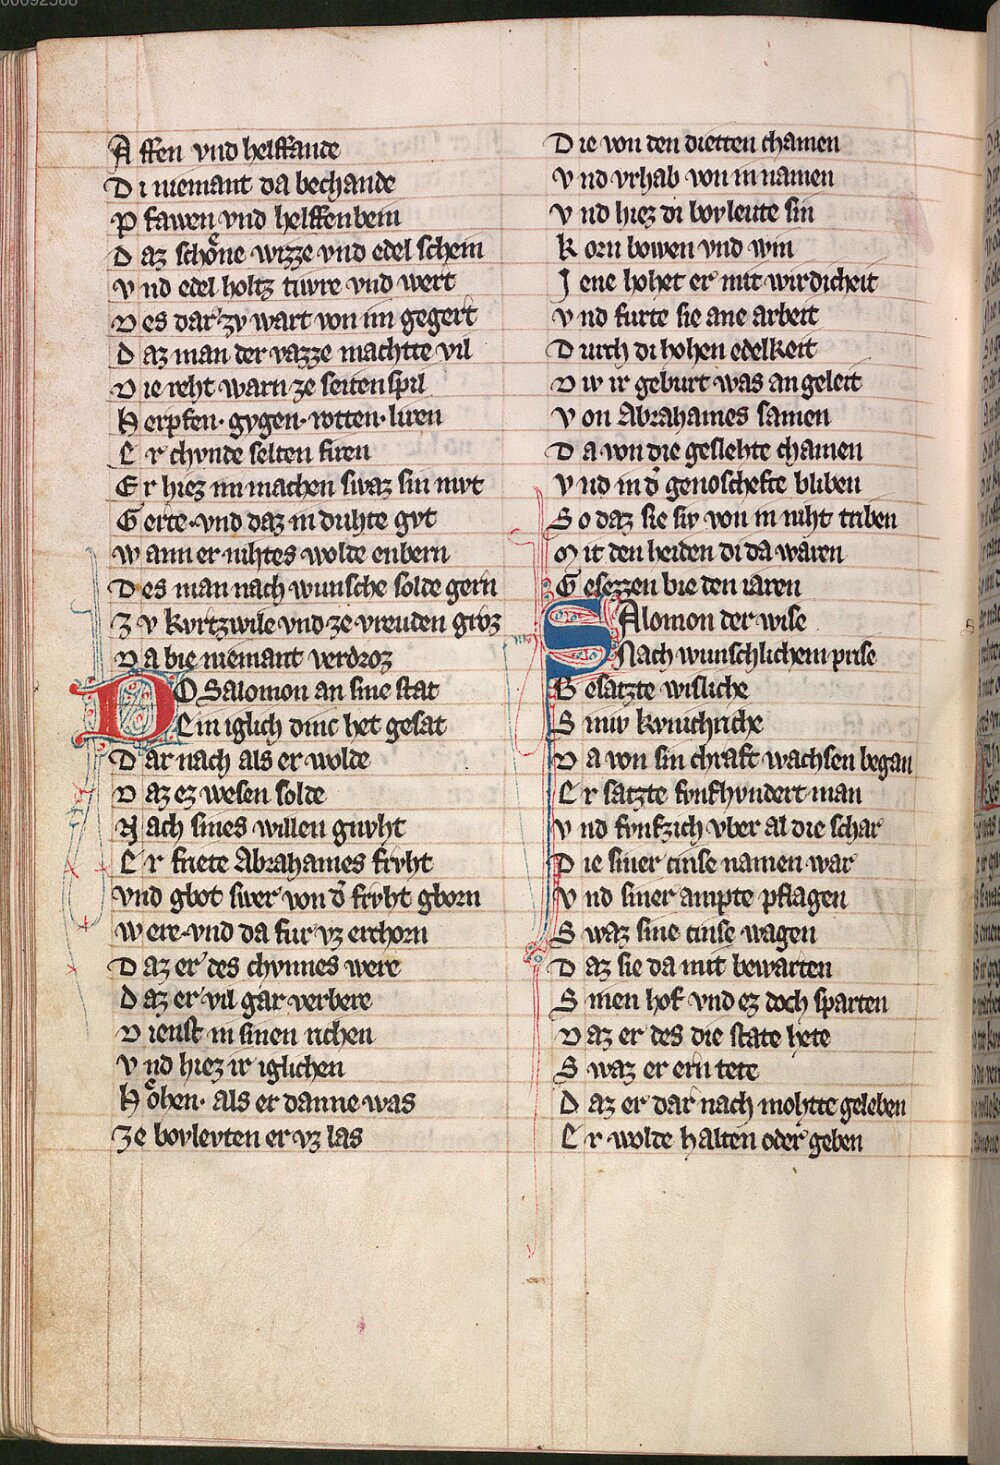 A ffen vnd helffande
D i niemant da bechande
P fawen vnd helffenbein
D az schoͤne wizze vnd edel schein
V nd edel holtz tiwre vnd wert
D es dar zv wart von im gegert
D az man der vazze machtte vil
D ie reht warn ze seitenspil
H erpfen· gygen· rotten· liren
E r chvnde selten firen
E r hiez im machen swaz sin mvt
G erte· vnd daz in duhte gvt
W ann er nihtes wolde enbern
D es man nach wunsche solde gern
Z v kvrtzwile vnd ze vreuden groz
D a bie niemant verdroz
DO Salomon an sine stat
E in iglich dinc het gesat
D ar nach als er wolde
D az ez wesen solde
N ach sines willen gnvht
E r friete Abrahames frvht
Vnd gbot swer von d̾ frvht gborn
W ere· vnd da fur vz erchorn
D az er des chvnnes were
D az er vil gar verbere
D ienst in sinen richen
V nd hiez ir iglichen
H oͤhen· als er danne was
Ze bovlevten er vz las
D ie von den dietten chamen
V nd vrhab von in namen
V nd hiez di bovleute sin
K orn bowen vnd win
J ene hohet er mit wirdicheit
V nd furte sie ane arbeit
D urch di hohen edelkeit
D iv ir geburt was an geleit
V on Abrahames samen
D a von die geslehte chamen
V nd in d̾ genoschefte bliben
S o daz sie siv von in niht triben
M it den heiden di da waren
G esezzen bie den iaren
SAlomon der wise
Nach wunschlichem prise
B esatzte wisliche
S iniv kvnichriche
D a von sin chraft wachsen began
E r satzte fvnfhvndert man
V nd fvnfzich vber al die schar
D ie siner cinse namen war
V nd siner ampte pflagen
S waz sine cinse wagen
D az sie da mit bewarten
S inen hof vnd ez doch sparten
D az er des die state hete
S waz er ern tete
D az er dar nach mohtte geleben
E r wolde halten oder geben